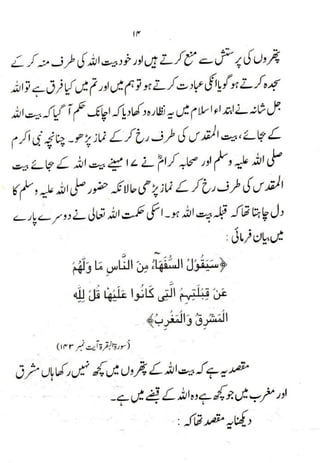 ۱۴
پتھروں کی پرستش سے منع کرتے ہیں اور خود بیت اللہ کی طرف منہ کر کے
سجدہ کرتے ہو گویا انکی عبادت کرتے ہو تو ہم میں اور تم میں کیا فرق ہے تو اللہ
جل شانہ نے ابتداء اسلام میں یہ نظارہ دکھا دیا کہ اچانک حکم آ گیا کہ بیت اللہ
کے بجائے، بیت المقدس کی طرف رخ کر کے نماز پڑھو۔ چنانچہ نبی اکرم
صلی اللہ علیہ وسلم اور صحابہ کرامؓ نے ۱۷ مہینے بیت اللہ کے بجائے بیت
المقدس کی طرف رخ کر کے نماز پڑھی حالانکہ حضور صلی اللہ علیہ وسلم کا
دل چاہتا تھا کہ قبلہ بیت اللہ ہو۔ اسکی حکمت اللہ تعالی نے دوسرے پارے
میں بیان فرمائی:
﴿سَيَقُوْلُ السُّفَهَآءُ مِنَ النَّاسِ مَا وَلّٰهُمْ
عَنْ قِبْلَتِهِمُ الَّتِى كَانُوْا عَلَيْهَا قُلْ لِلّٰهِ
الْمَشْرِقُ وَالْمَغْرِبُ﴾
(سورۃ البقرۃ آیت نمبر ۱۴۲)
مقصد یہ ہے کہ بیت اللہ کے پتھروں میں کچھ نہیں رکھا ہاں مشرق
اور مغرب میں جو کچھ ہے وہ اللہ کے قبضے میں ہے۔
دیکھنا یہ مقصد تھا کہ :